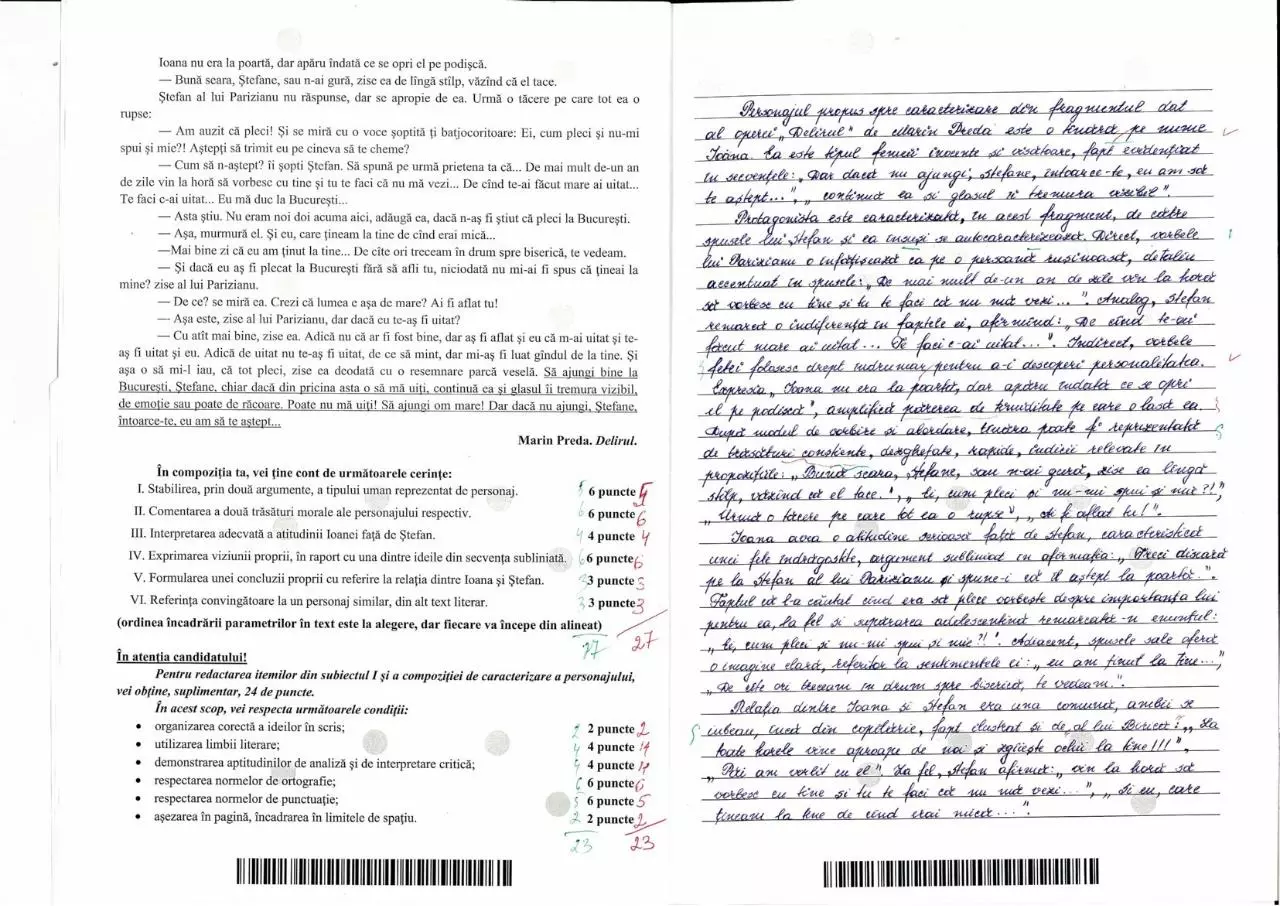 Ioana nu era la poartă, dar apăru îndată ce se opri el pe podişcă.
— Bună seara, Ştefane, sau n-ai gură, zise ea de lîngă stîlp, văzînd că el tace.
Ştefan al lui Parizianu nu răspunse, dar se apropie de ea. Urmă o tăcere pe care tot ea o
rupse:
— Am auzit că pleci! Şi se miră cu o voce şoptită ţi batjocoritoare: Ei, cum pleci şi nu-mi
spui şi mie?! Aştepţi să trimit eu pe cineva să te cheme?
— Cum să n-aştept? îi şopti Ştefan. Să spună pe urmă prietena ta că... De mai mult de-un an
de zile vin la horă să vorbesc cu tine şi tu te faci că nu mă vezi... De cînd te-ai făcut mare ai uitat...
Te faci c-ai uitat... Eu mă duc la Bucureşti...
— Asta ştiu. Nu eram noi doi acuma aici, adăugă ea, dacă n-aş fi ştiut că pleci la Bucureşti.
— Aşa, murmură el. Şi eu, care ţineam la tine de cînd erai mică...
—Mai bine zi că eu am ţinut la tine... De cîte ori treceam în drum spre biserică, te vedeam.
— Şi dacă eu aş fi plecat la Bucureşti fără să afli tu, niciodată nu mi-ai fi spus că ţineai la
mine? zise al lui Parizianu.
— De ce? se miră ea. Crezi că lumea e aşa de mare? Ai fi aflat tu!
— Aşa este, zise al lui Parizianu, dar dacă eu te-aş fi uitat?
— Cu atît mai bine, zise ea. Adică nu că ar fi fost bine, dar aş fi aflat şi eu că m-ai uitat şi te-
aş fi uitat şi eu. Adică de uitat nu te-aş fi uitat, de ce să mint, dar mi-aş fi luat gîndul de la tine. Şi
aşa o să mi-l iau, că tot pleci, zise ea deodată cu o resemnare parcă veselă. Să ajungi bine la
Bucureşti, Ştefane, chiar dacă din pricina asta o să mă uiţi, continuă ea şi glasul îi tremura vizibil,
de emoţie sau poate de răcoare. Poate nu mă uiţi! Să ajungi om mare! Dar dacă nu ajungi, Ştefane,
întoarce-te, eu am să te aştept...
Marin Preda. Delirul.
În compoziţia ta, vei ţine cont de următoarele cerinţe:
I. Stabilirea, prin două argumente, a tipului uman reprezentat de personaj. 5 6 puncte 5
II. Comentarea a două trăsături morale ale personajului respectiv. 6 6 puncte 6
III. Interpretarea adecvată a atitudinii Ioanei faţă de Ştefan. 4 4 puncte 4
IV. Exprimarea viziunii proprii, în raport cu una dintre ideile din secvenţa subliniată. 6 6 puncte 6
V. Formularea unei concluzii proprii cu referire la relaţia dintre Ioana şi Ştefan. 3 3 puncte 3
VI. Referinţa convingătoare la un personaj similar, din alt text literar. 3 3 puncte 3
(ordinea încadrării parametrilor în text este la alegere, dar fiecare va începe din alineat)
27 27
În atenţia candidatului!
Pentru redactarea itemilor din subiectul I şi a compoziţiei de caracterizare a personajului,
vei obţine, suplimentar, 24 de puncte.
În acest scop, vei respecta următoarele condiţii:
• organizarea corectă a ideilor în scris; 2 2 puncte 2
• utilizarea limbii literare; 4 4 puncte 4
• demonstrarea aptitudinilor de analiză şi de interpretare critică; 4 4 puncte 4
• respectarea normelor de ortografie; 6 6 puncte 6
• respectarea normelor de punctuaţie; 5 6 puncte 5
• aşezarea în pagină, încadrarea în limitele de spaţiu. 2 2 puncte 2
23 23
Personajul propus spre caracterizare din fragmentul dat
al operei „Delirul" de Marin Preda este o tînără, pe nume
Ioana. Ea este tipul femeii inocente şi visătoare, fapt evidenţiat
în secvenţele: „Dar dacă nu ajungi, Ştefane, întoarce-te, eu am să
te aştept...", „continuă ea şi glasul îi tremura vizibil".
Protagonista este caracterizată, în acest fragment, de către
spusele lui Ştefan şi ea însuşi se autocaracterizează. Direct, vorbele
lui Parizianu o înfăţişează ca pe o persoană ruşinoasă, detaliu
accentuat în spusele: „De mai mult de-un an de zile vin la horă
să vorbesc cu tine şi tu te faci că nu mă vezi...". Analog, Ştefan
remarcă o indiferenţă în faptele ei, afirmînd: „De cînd te-ai
făcut mare ai uitat... Te faci c-ai uitat...". Indirect, vorbele
fetei folosesc drept îndrumar, pentru a-i descoperi personalitatea.
Expresia „Ioana nu era la poartă, dar apăru îndată ce se opri
el pe podişcă", amplifică părerea de timiditate pe care o lasă ea.
După modul de vorbire şi abordare, tînăra poate fi reprezentată
de trăsături conştiente, dezgheţate, rapide, indicii relevate în
propoziţiile: „Bună seara, Ştefane, sau n-ai gură, zise ea lîngă
stîlp, văzînd că el tace.", „Ei, cum pleci şi nu-mi spui şi mie?!",
„Urmă o tăcere pe care tot ea o rupse", „Ai fi aflat tu!".
Ioana avea o atitudine serioasă faţă de Ştefan, caracteristică
unei fete îndrăgostite, argument subliniat în afirmaţia: „Treci diseară
pe la Ştefan al lui Parizianu şi spune-i că îl aştept la poartă.".
Faptul că l-a căutat cînd era să plece vorbeşte despre importanţa lui
pentru ea, la fel şi supărarea adolescentină remarcată-n enunţul:
„Ei, cum pleci şi nu-mi spui şi mie?!". Adiacent, spusele sale oferă
o imagine clară, referitor la sentimentele ei: „eu am ţinut la tine...",
„De cîte ori treceam în drum spre biserică, te vedeam.".
Relaţia dintre Ioana şi Ştefan era una comună, ambii se
iubeau, încă din copilărie, fapt ilustrat şi de al lui Biricu: „La
toate horele vine aproape de noi şi zgîieşte ochii la tine!!!",
am vorbit cu el". La fel, Ştefan afirmă: „vin la horă să
vorbesc cu tine şi tu te faci că nu mă vezi...", „Şi eu, care
ţineam la tine de cînd erai mică...".